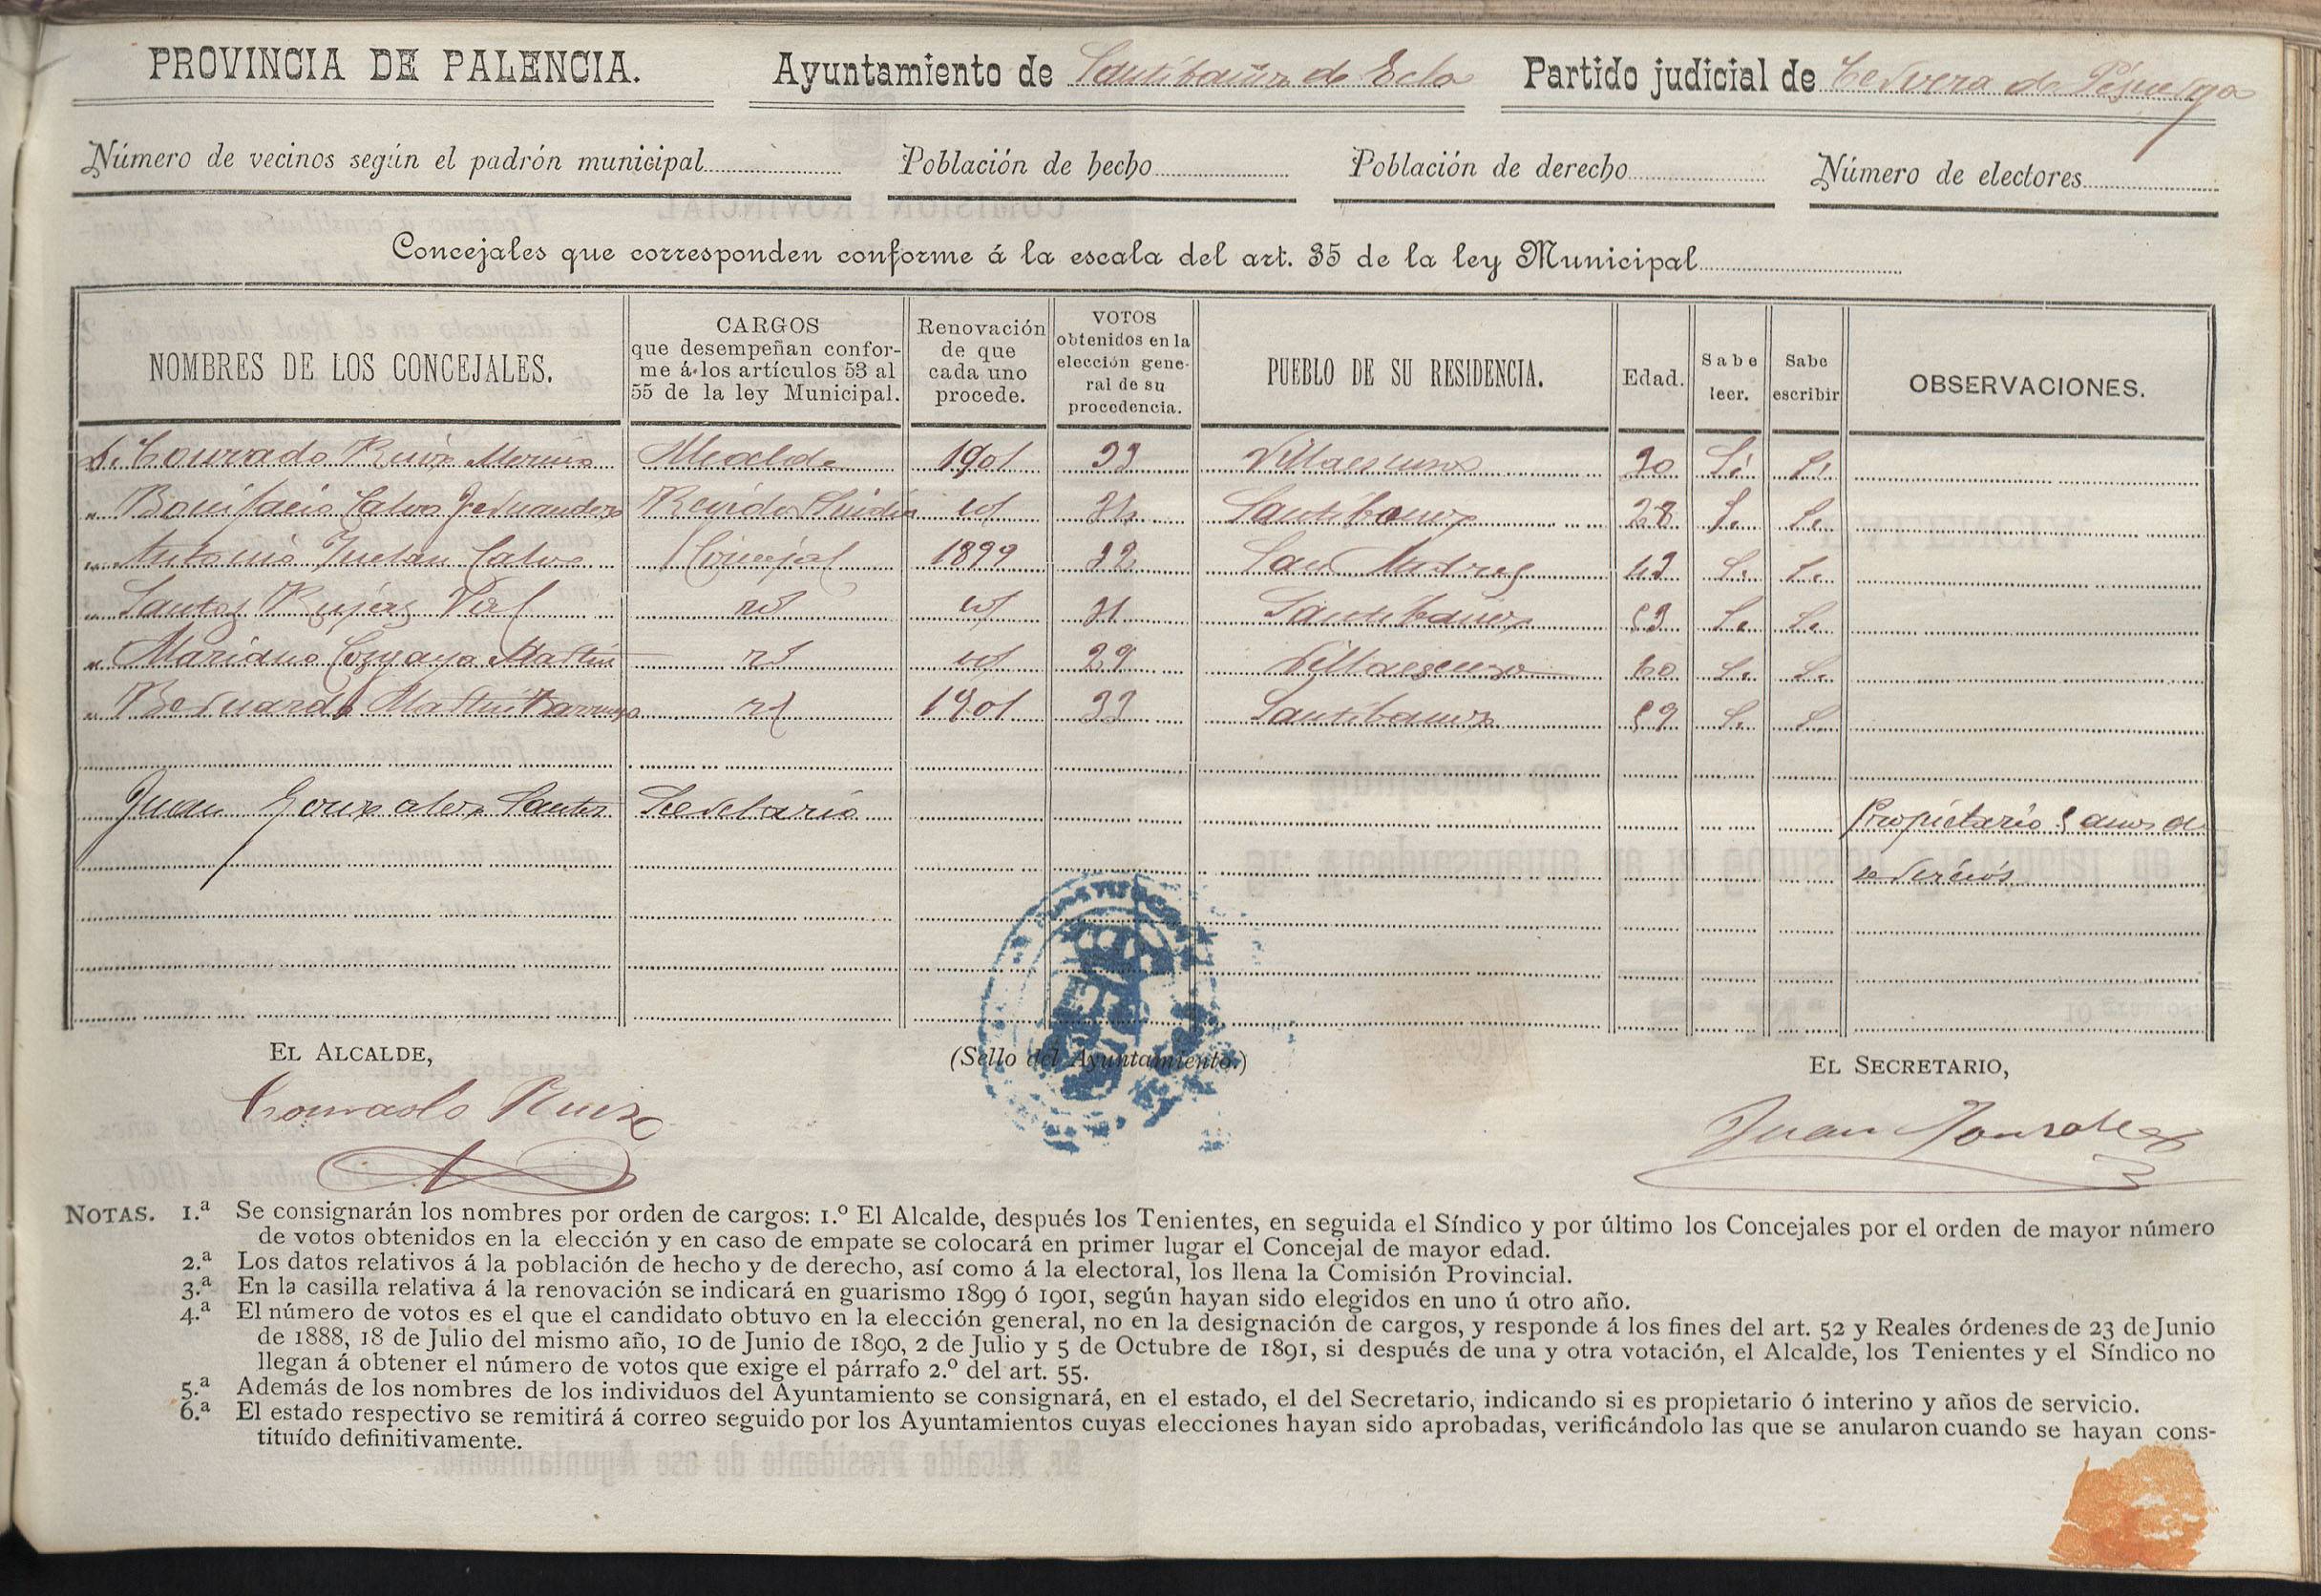 PROVINCIA DE PALENCIA. Ayuntamiento de Santibañez de Ecla Partido judicial de Cervera de Pisuerga
Número de vecinos según el padrón municipal Población de hecho Población de derecho Número de electores
Concejales que corresponden conforme á la escala del art. 35 de la ley Municipal
NOMBRES DE LOS CONCEJALES.
CARGOS
que desempeñan confor-
me á los artículos 53 al
55 de la ley Municipal.
Renovación
de que
cada uno
procede.
VOTOS
obtenidos en la
elección gene-
ral de su
procedencia.
PUEBLO DE SU RESIDENCIA.
Edad.
Sabe
leer.
Sabe
escribir
OBSERVACIONES.
D. Conrado Ruiz Merino Alcalde 1901 Villaescusa Si Si
" Bonifacio Calvo Fernandez Regidor Sindico id Santibanez 28 Si Si
" Antonio Calvo Concejal 1899 San Andres Si Si
" Santos Val id id Santibañez Si Si
" Mariano Cozgaya Martin id id 29 Villaescusa 60 Si Si
" Bernardo Martin id 1901 Santibanez Si Si
Juan Gonzalez Santos Secretario Propietario anos de
servicios
EL ALCALDE,
(Sello del Ayuntamiento.)
EL SECRETARIO,
Conrado Ruiz
Juan Gonzalez
NOTAS. 1.ª Se consignarán los nombres por orden de cargos: 1.º El Alcalde, después los Tenientes, en seguida el Síndico y por último los Concejales por el orden de mayor número
de votos obtenidos en la elección y en caso de empate se colocará en primer lugar el Concejal de mayor edad.
2.ª Los datos relativos á la población de hecho y de derecho, así como á la electoral, los llena la Comisión Provincial.
3.ª En la casilla relativa á la renovación se indicará en guarismo 1899 ó 1901, según hayan sido elegidos en uno ú otro año.
4.ª El número de votos es el que el candidato obtuvo en la elección general, no en la designación de cargos, y responde á los fines del art. 52 y Reales órdenes de 23 de Junio
de 1888, 18 de Julio del mismo año, 10 de Junio de 1890, 2 de Julio y 5 de Octubre de 1891, si después de una y otra votación, el Alcalde, los Tenientes y el Síndico no
llegan á obtener el número de votos que exige el párrafo 2.º del art. 55.
5.ª Además de los nombres de los individuos del Ayuntamiento se consignará, en el estado, el del Secretario, indicando si es propietario ó interino y años de servicio.
6.ª El estado respectivo se remitirá á correo seguido por los Ayuntamientos cuyas elecciones hayan sido aprobadas, verificándolo las que se anularon cuando se hayan cons-
tituído definitivamente.